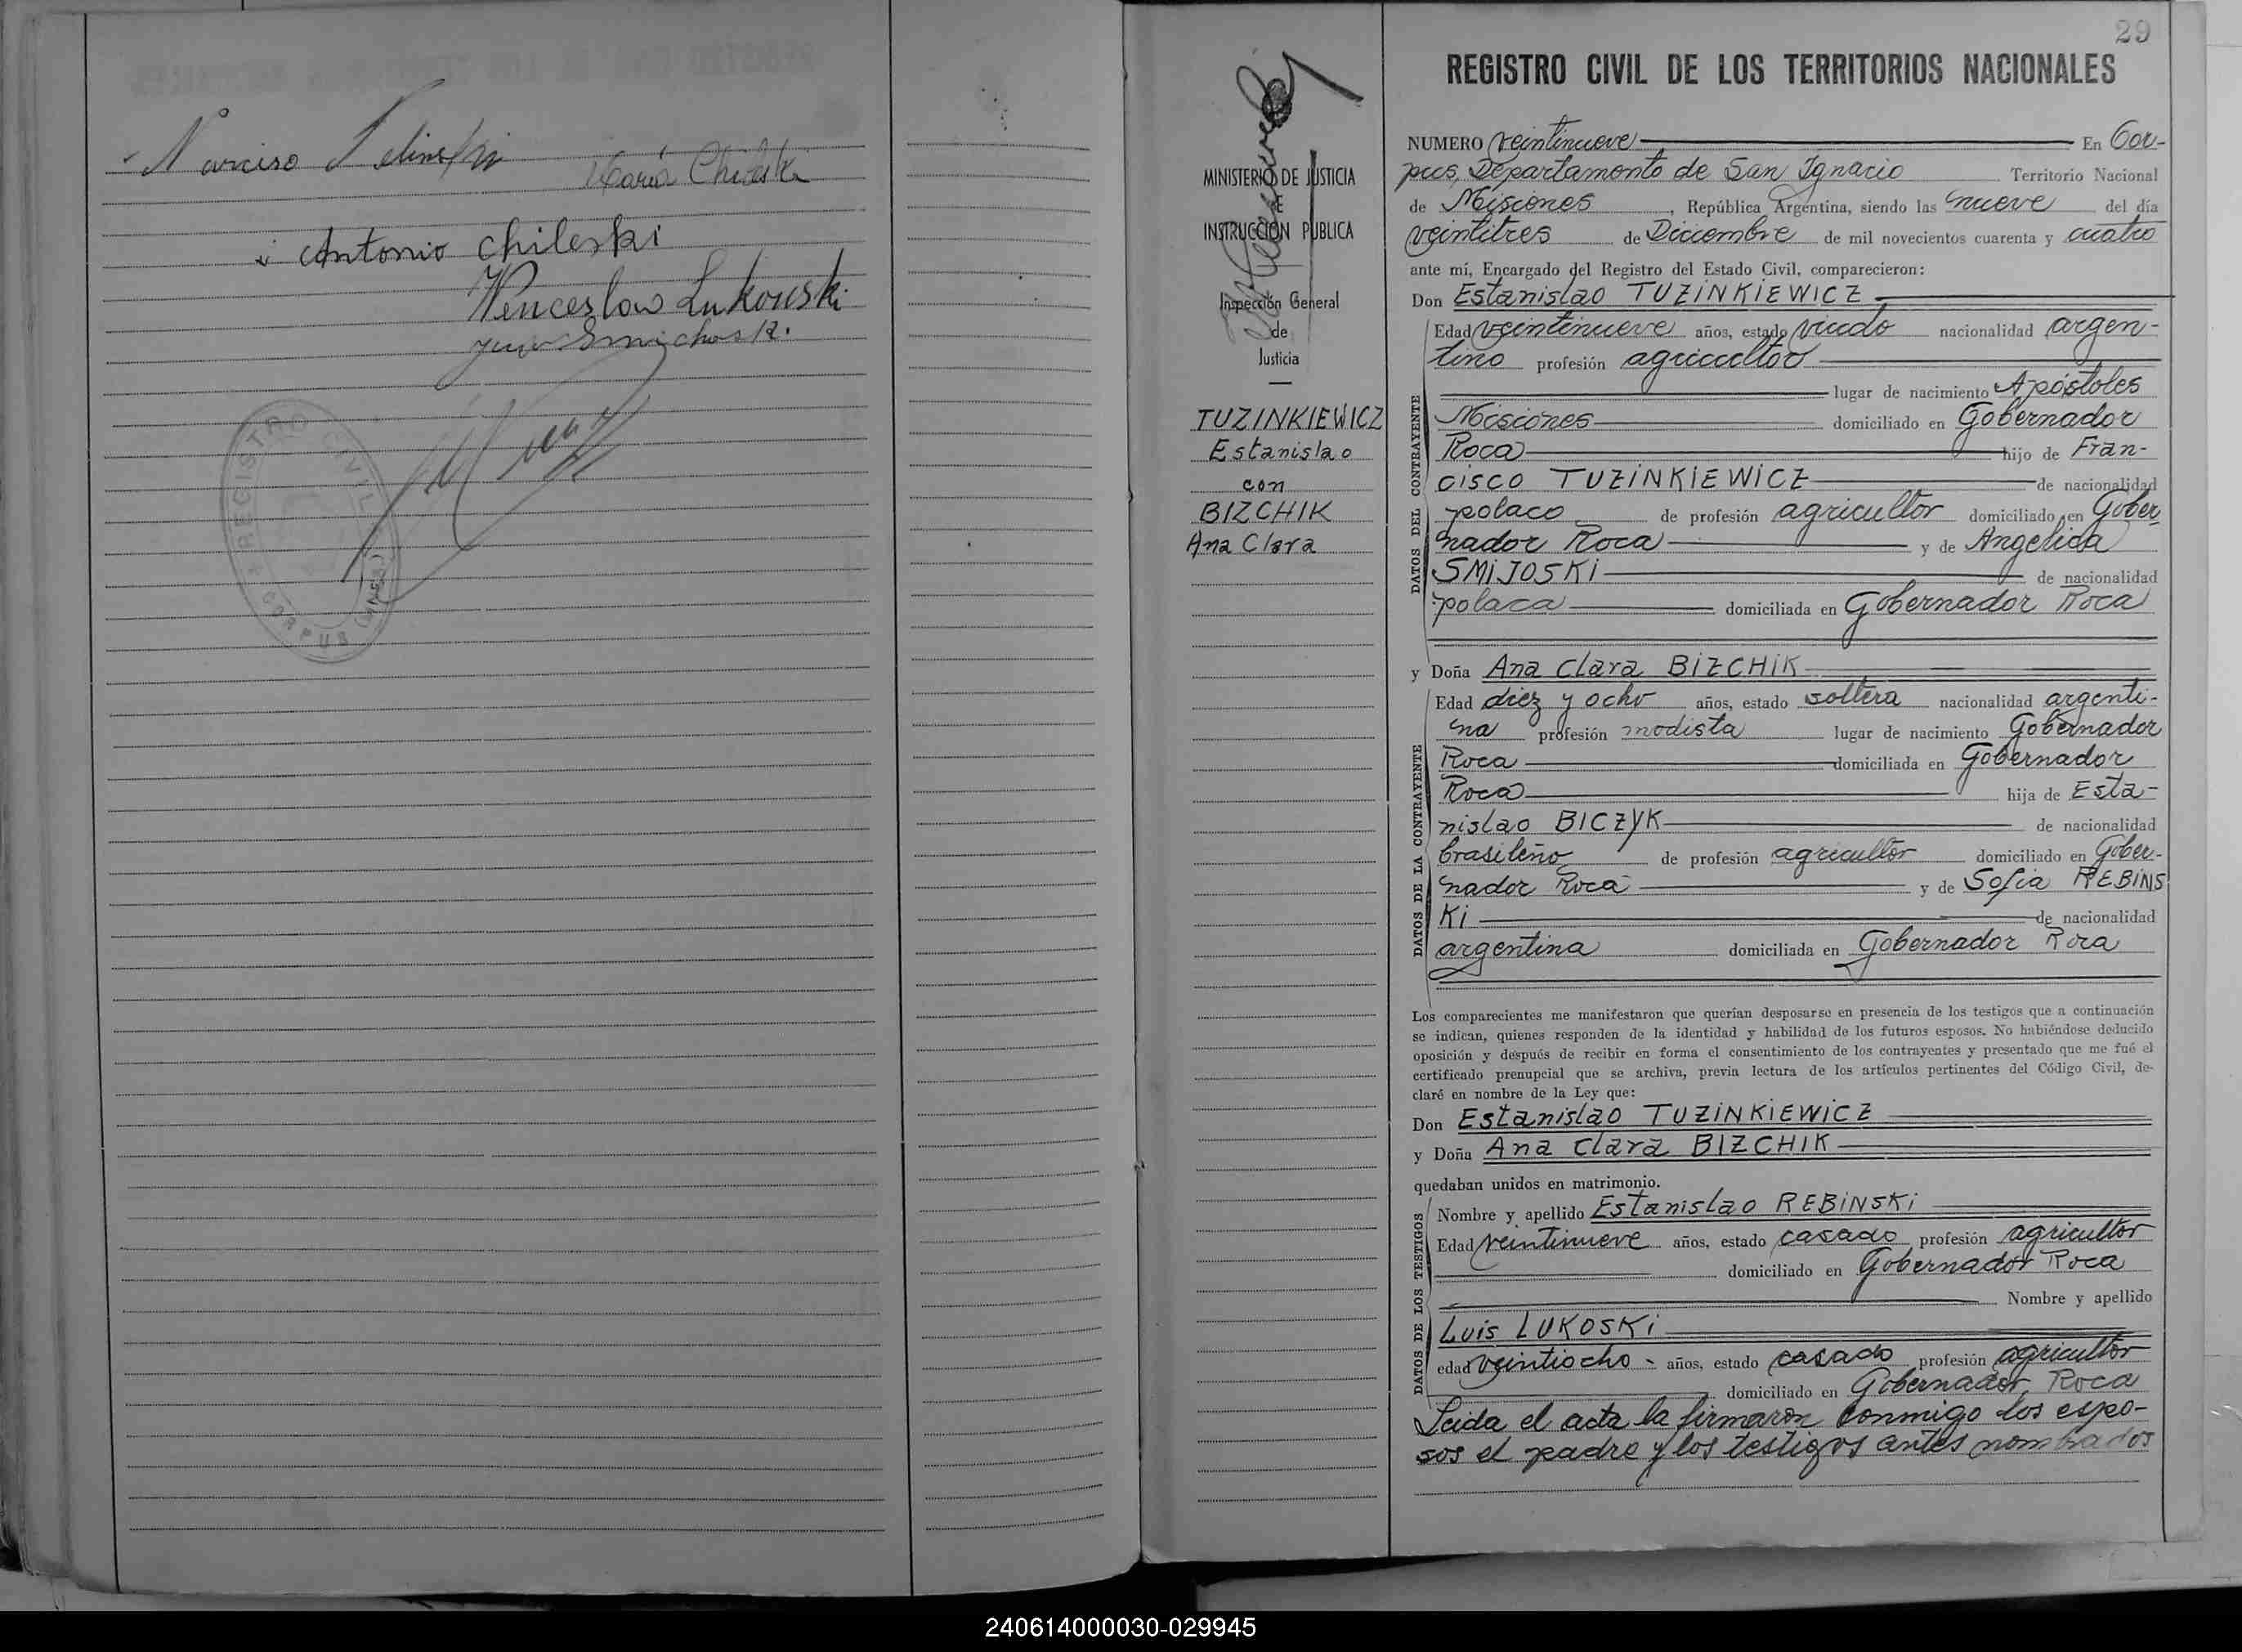 Narciso
María Chileski
Antonio Chileski
Wenceslao Lukowski
REGISTRO CIVIL
CORPUS
29
REGISTRO CIVIL DE LOS TERRITORIOS NACIONALES
MINISTERIO DE JUSTICIA
E
INSTRUCCIÓN PUBLICA
Inspección General
de
Justicia
TUZINKIEWICZ
Estanislao
con
BIZCHIK
Ana Clara
NUMERO veintinueve En Cor-
pus, Departamento de San Ignacio Territorio Nacional
de Misiones, República Argentina, siendo las nueve del día
veintitres de Diciembre de mil novecientos cuarenta y cuatro
ante mí, Encargado del Registro del Estado Civil, comparecieron:
Don Estanislao TUZINKIEWICZ
DATOS DEL CONTRAYENTE
Edad veintinueve años, estado viudo nacionalidad argen-
tino profesión agricultor
lugar de nacimiento Apóstoles
Misiones domiciliado en Gobernador
Roca hijo de Fran-
cisco TUZINKIEWICZ de nacionalidad
polaco de profesión agricultor domiciliado en Gober
nador Roca y de Angelica
SMIJOSKI de nacionalidad
polaca domiciliada en Gobernador Roca
y Doña Ana Clara BIZCHIK
DATOS DE LA CONTRAYENTE
Edad diez y ocho años, estado soltera nacionalidad argenti-
na profesión modista lugar de nacimiento Gobernador
Roca domiciliada en Gobernador
Roca hija de Esta-
nislao BICZYK de nacionalidad
brasileño de profesión agricultor domiciliado en Gober-
nador Roca y de Sofia REBINS
KI de nacionalidad
argentina domiciliada en Gobernador Roca
Los comparecientes me manifestaron que querían desposarse en presencia de los testigos que a continuación
se indican, quienes responden de la identidad y habilidad de los futuros esposos. No habiéndose deducido
oposición y después de recibir en forma el consentimiento de los contrayentes y presentado que me fué el
certificado prenupcial que se archiva, previa lectura de los artículos pertinentes del Código Civil, de-
claré en nombre de la Ley que:
Don Estanislao TUZINKIEWICZ
y Doña Ana Clara BIZCHIK
quedaban unidos en matrimonio.
DATOS DE LOS TESTIGOS
Nombre y apellido Estanislao REBINSKI
Edad veintinueve años, estado casado profesión agricultor
domiciliado en Gobernador Roca
Nombre y apellido
Luis LUKOSKI
edad veintiocho - años, estado casado profesión agricultor
domiciliado en Gobernador Roca
Leida el acta la firmaron conmigo los espo-
sos el padre y los testigos antes nombrados
240614000030-029945